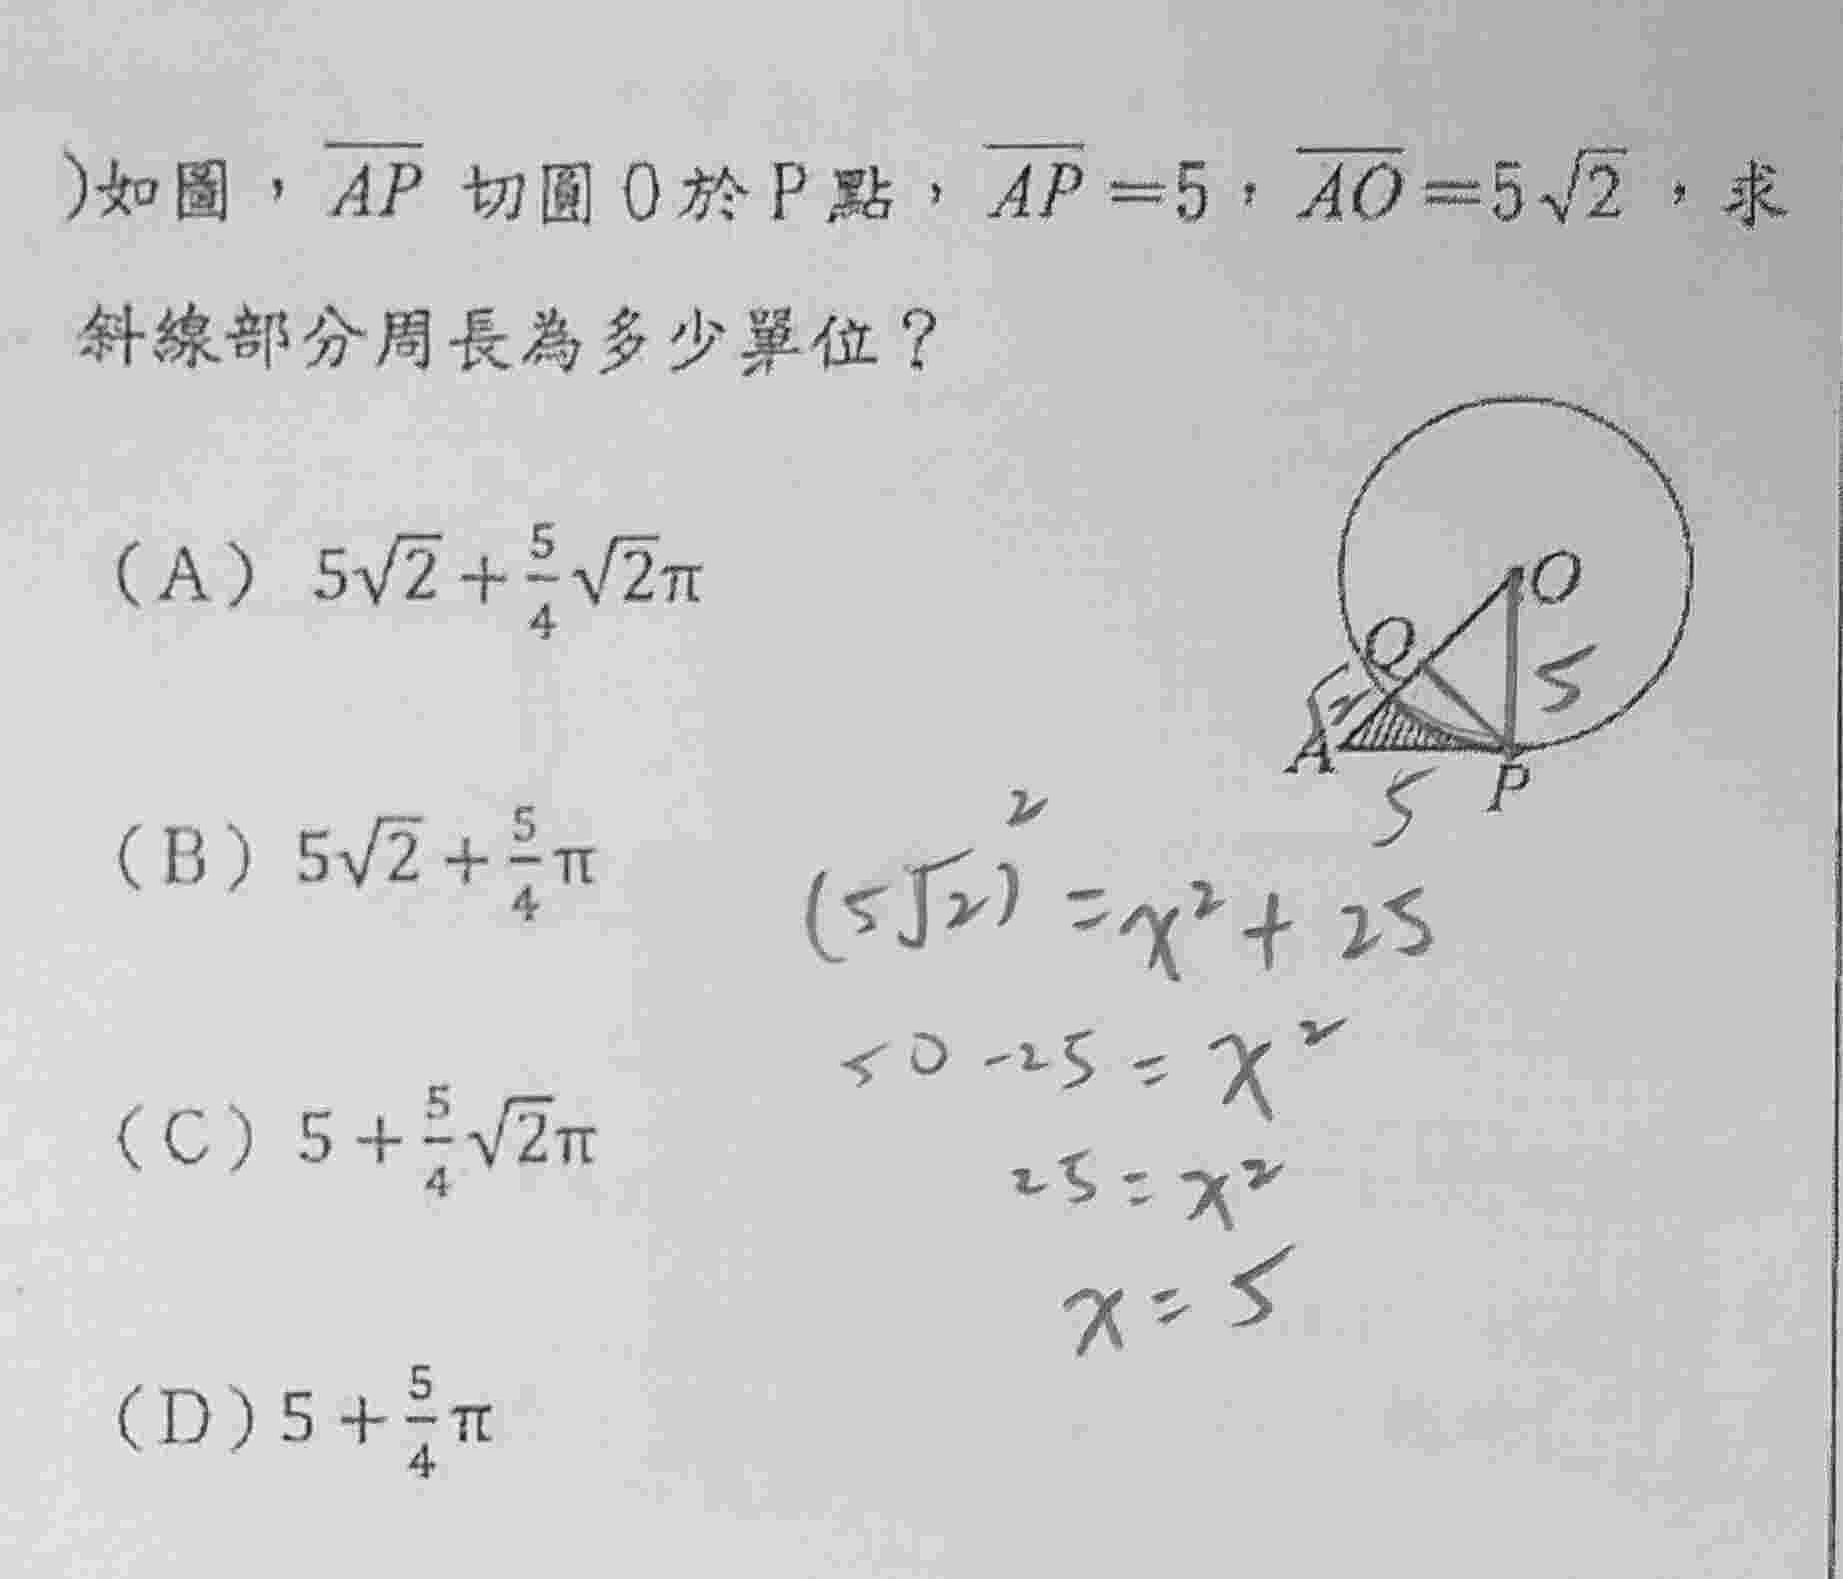 )如圖，AP 切圓 O 於 P 點，AP=5，AO=5√2，求
斜線部分周長為多少單位？
(A) 5√2+5/4√2π
(B) 5√2+5/4π
(C) 5+5/4√2π
(D) 5+5/4π
O
Q
5
A
P
5
(5√2)²=x²+25
50-25=x²
25=x²
x=5